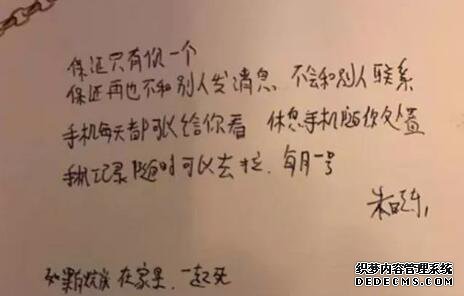 保证只有你一个
保证再也不和别人发消息 不会和别人联系
手机每天都可以给你看 休息手机随你处置
手机记录随时可以去拉. 每月一号
朱
如果 在家里. 一起死
织梦内容管理系统
DEDECMS.COM